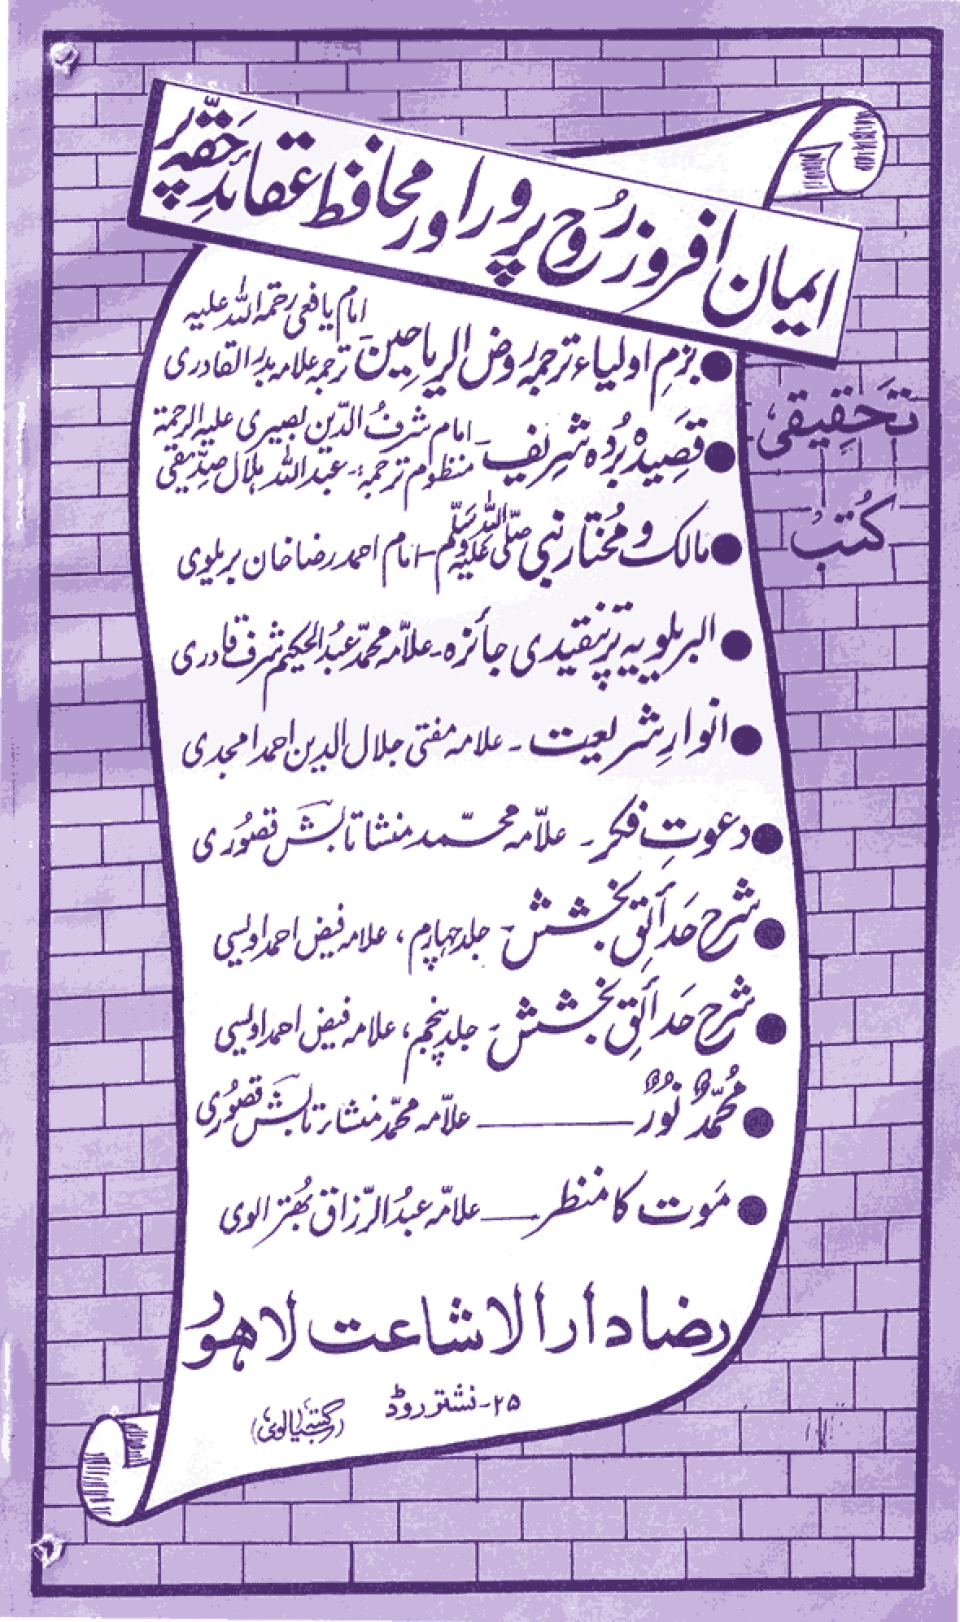 ایمان افروز رُوح پرور اور محافظ عقائدِ حَقّہ پر
تحَقِیقی
کُتب
بزمِ اولیاء ترجمہ روض الریاحین - امام یافعی رحمۃ اللہ علیہ
ترجمہ علامہ بدر القادری
قصَیدہ بُردہ شریف - امام شرفُ الدّین بصیری علیہ الرحمۃ
منظوم ترجمہ: عبد اللہ ہلال صدّیقی
مالک و مُختار نبی صلی اللہ علیہ وسلم - امام احمد رضا خان بریلوی
البریلویہ پر تنقیدی جائزہ - علامّہ محمّد عبدُ الحکیم شرف قادری
انوارِ شریعت - علامہ مفتی جلال الدین احمد امجدی
دعوتِ فکر - علاّمہ محمّد منشا تابش قصُوری
شرح حَدائق بخشش - جلد چہارم، علامہ فیض احمد اویسی
شرح حَدائق بخشش - جلد پنجم، علامہ فیض احمد اویسی
مُحمّدٌ نُورٌ ـــــ علاّمہ محمّد منشاء تابش قصُوری
مَوت کا منظر ـــــ علاّمہ عبدُ الرّزاق بھُترالوی
رضا دار الاشاعت لاھور
۲۵- نشتر روڈ